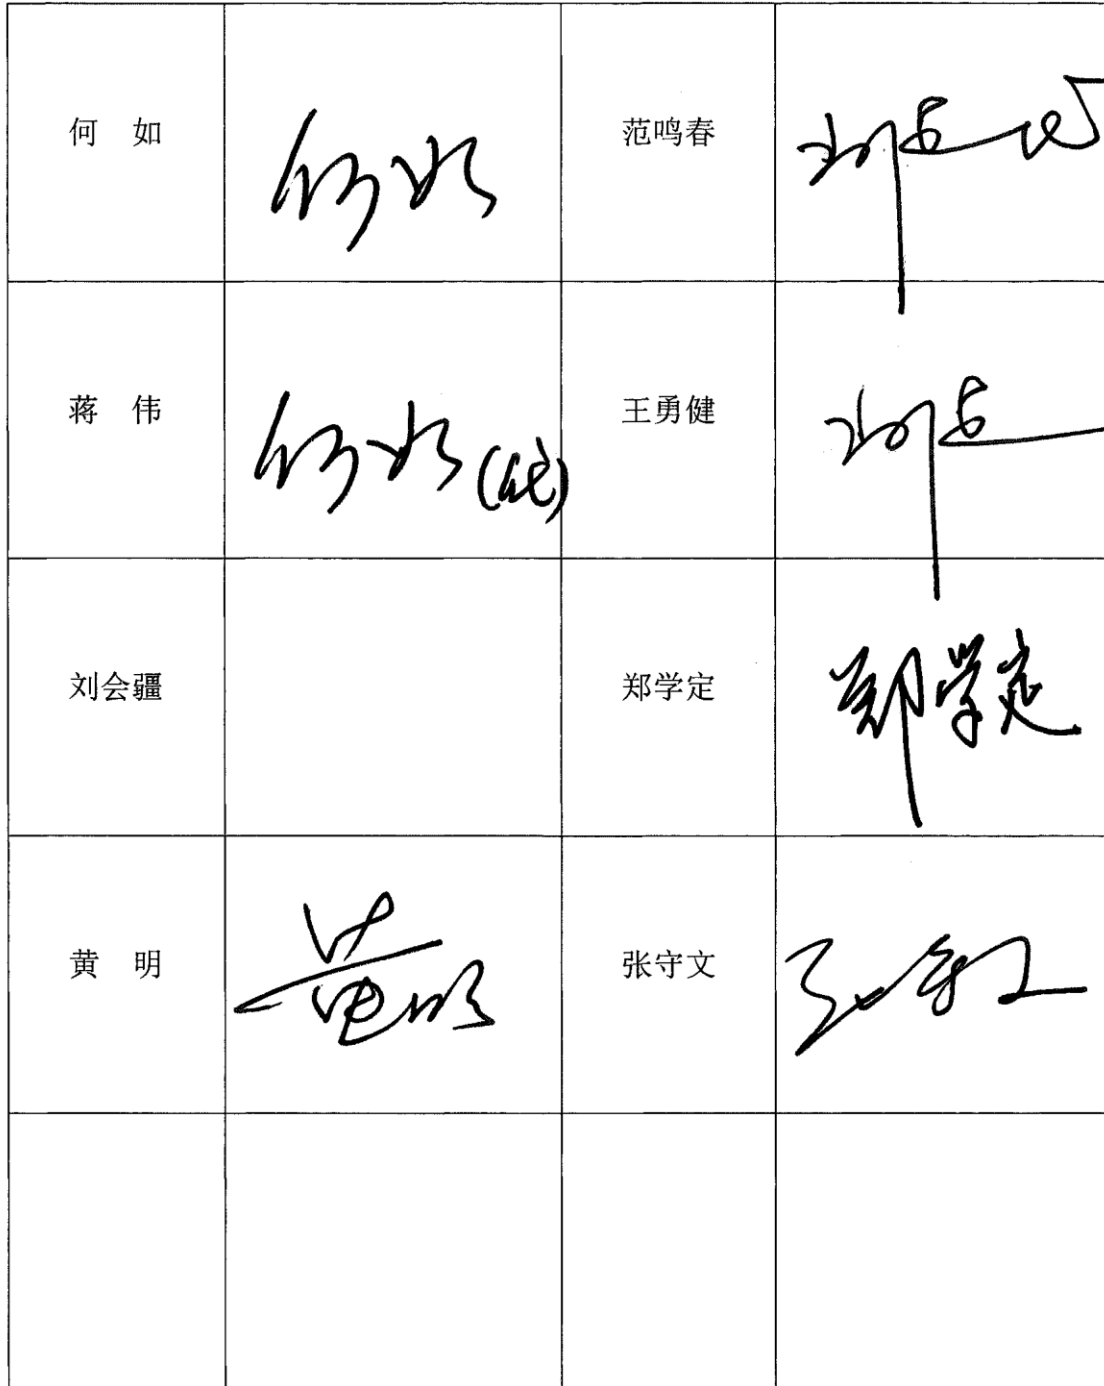 何 如 何如 范鸣春
蒋 伟 何如(代) 王勇健
刘会疆 郑学定 郑学定
黄 明 黄明 张守文 张守文